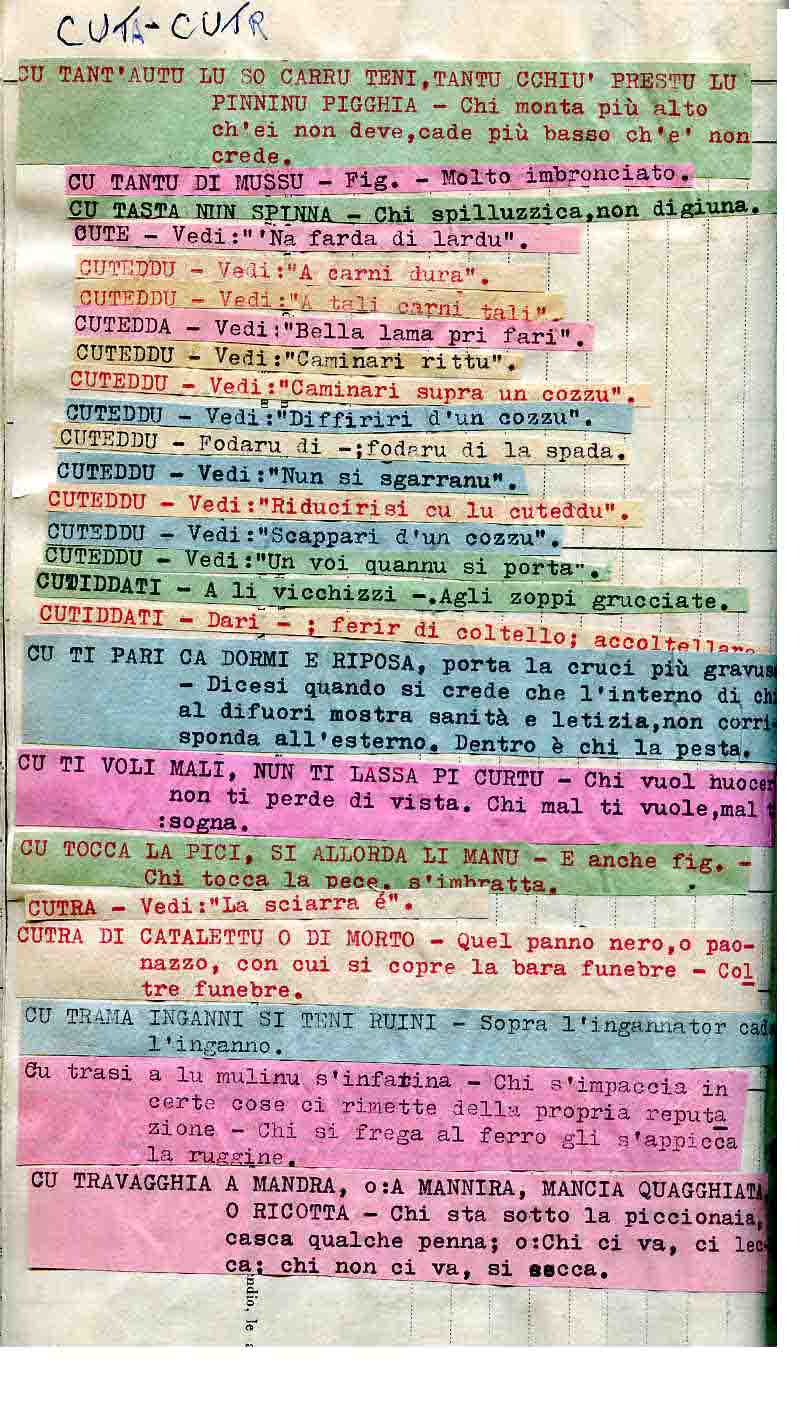 CUTA-CUTR
CU TANT'AUTU LU SO CARRU TENI,TANTU CCHIU' PRESTU LU
PINNINU PIGGHIA - Chi monta più alto
ch'ei non deve,cade più basso ch'e' non
crede.
CU TANTU DI MUSSU - Fig. - Molto imbronciato.
CU TASTA NUN SPINNA - Chi spilluzzica,non digiuna.
CUTE - Vedi:"'Na farda di lardu".
CUTEDDU - Vedi:"A carni dura".
CUTEDDU - Vedi:"A tali carni tali".
CUTEDDA - Vedi:"Bella lama pri fari".
CUTEDDU - Vedi:"Caminari rittu".
CUTEDDU - Vedi:"Caminari supra un cozzu".
CUTEDDU - Vedi:"Diffiriri d'un cozzu".
CUTEDDU - Fodaru di -;fodaru di la spada.
CUTEDDU - Vedi:"Nun si sgarranu".
CUTEDDU - Vedi:"Riducirisi cu lu cuteddu".
CUTEDDU - Vedi:"Scappari d'un cozzu".
CUTEDDU - Vedi:"Un voi quannu si porta".
CUTIDDATI - A li vicchizzi -.Agli zoppi grucciate.
CUTIDDATI - Dari - ; ferir di coltello; accoltellare
CU TI PARI CA DORMI E RIPOSA, porta la cruci più gravus
- Dicesi quando si crede che l'interno di chi
al difuori mostra sanità e letizia,non corri-
sponda all'esterno. Dentro è chi la pesta.
CU TI VOLI MALI, NUN TI LASSA PI CURTU - Chi vuol nuocer
non ti perde di vista. Chi mal ti vuole,mal t
:sogna.
CU TOCCA LA PICI, SI ALLORDA LI MANU - E anche fig. -
Chi tocca la pece, s'imbratta.
CUTRA - Vedi:"La sciarra é".
CUTRA DI CATALETTU O DI MORTO - Quel panno nero,o pao-
nazzo, con cui si copre la bara funebre - Col
tre funebre.
CU TRAMA INGANNI SI TENI RUINI - Sopra l'ingannator cade
l'inganno.
Cu trasi a lu mulinu s'infarina - Chi s'impaccia in
certe cose ci rimette della propria reputa
zione - Chi si frega al ferro gli s'appicca
la ruggine.
CU TRAVAGGHIA A MANDRA, o:A MANNIRA, MANCIA QUAGGHIATA
O RICOTTA - Chi sta sotto la piccionaia,
casca qualche penna; o:Chi ci va, ci lec-
ca; chi non ci va, si secca.
ndio, le